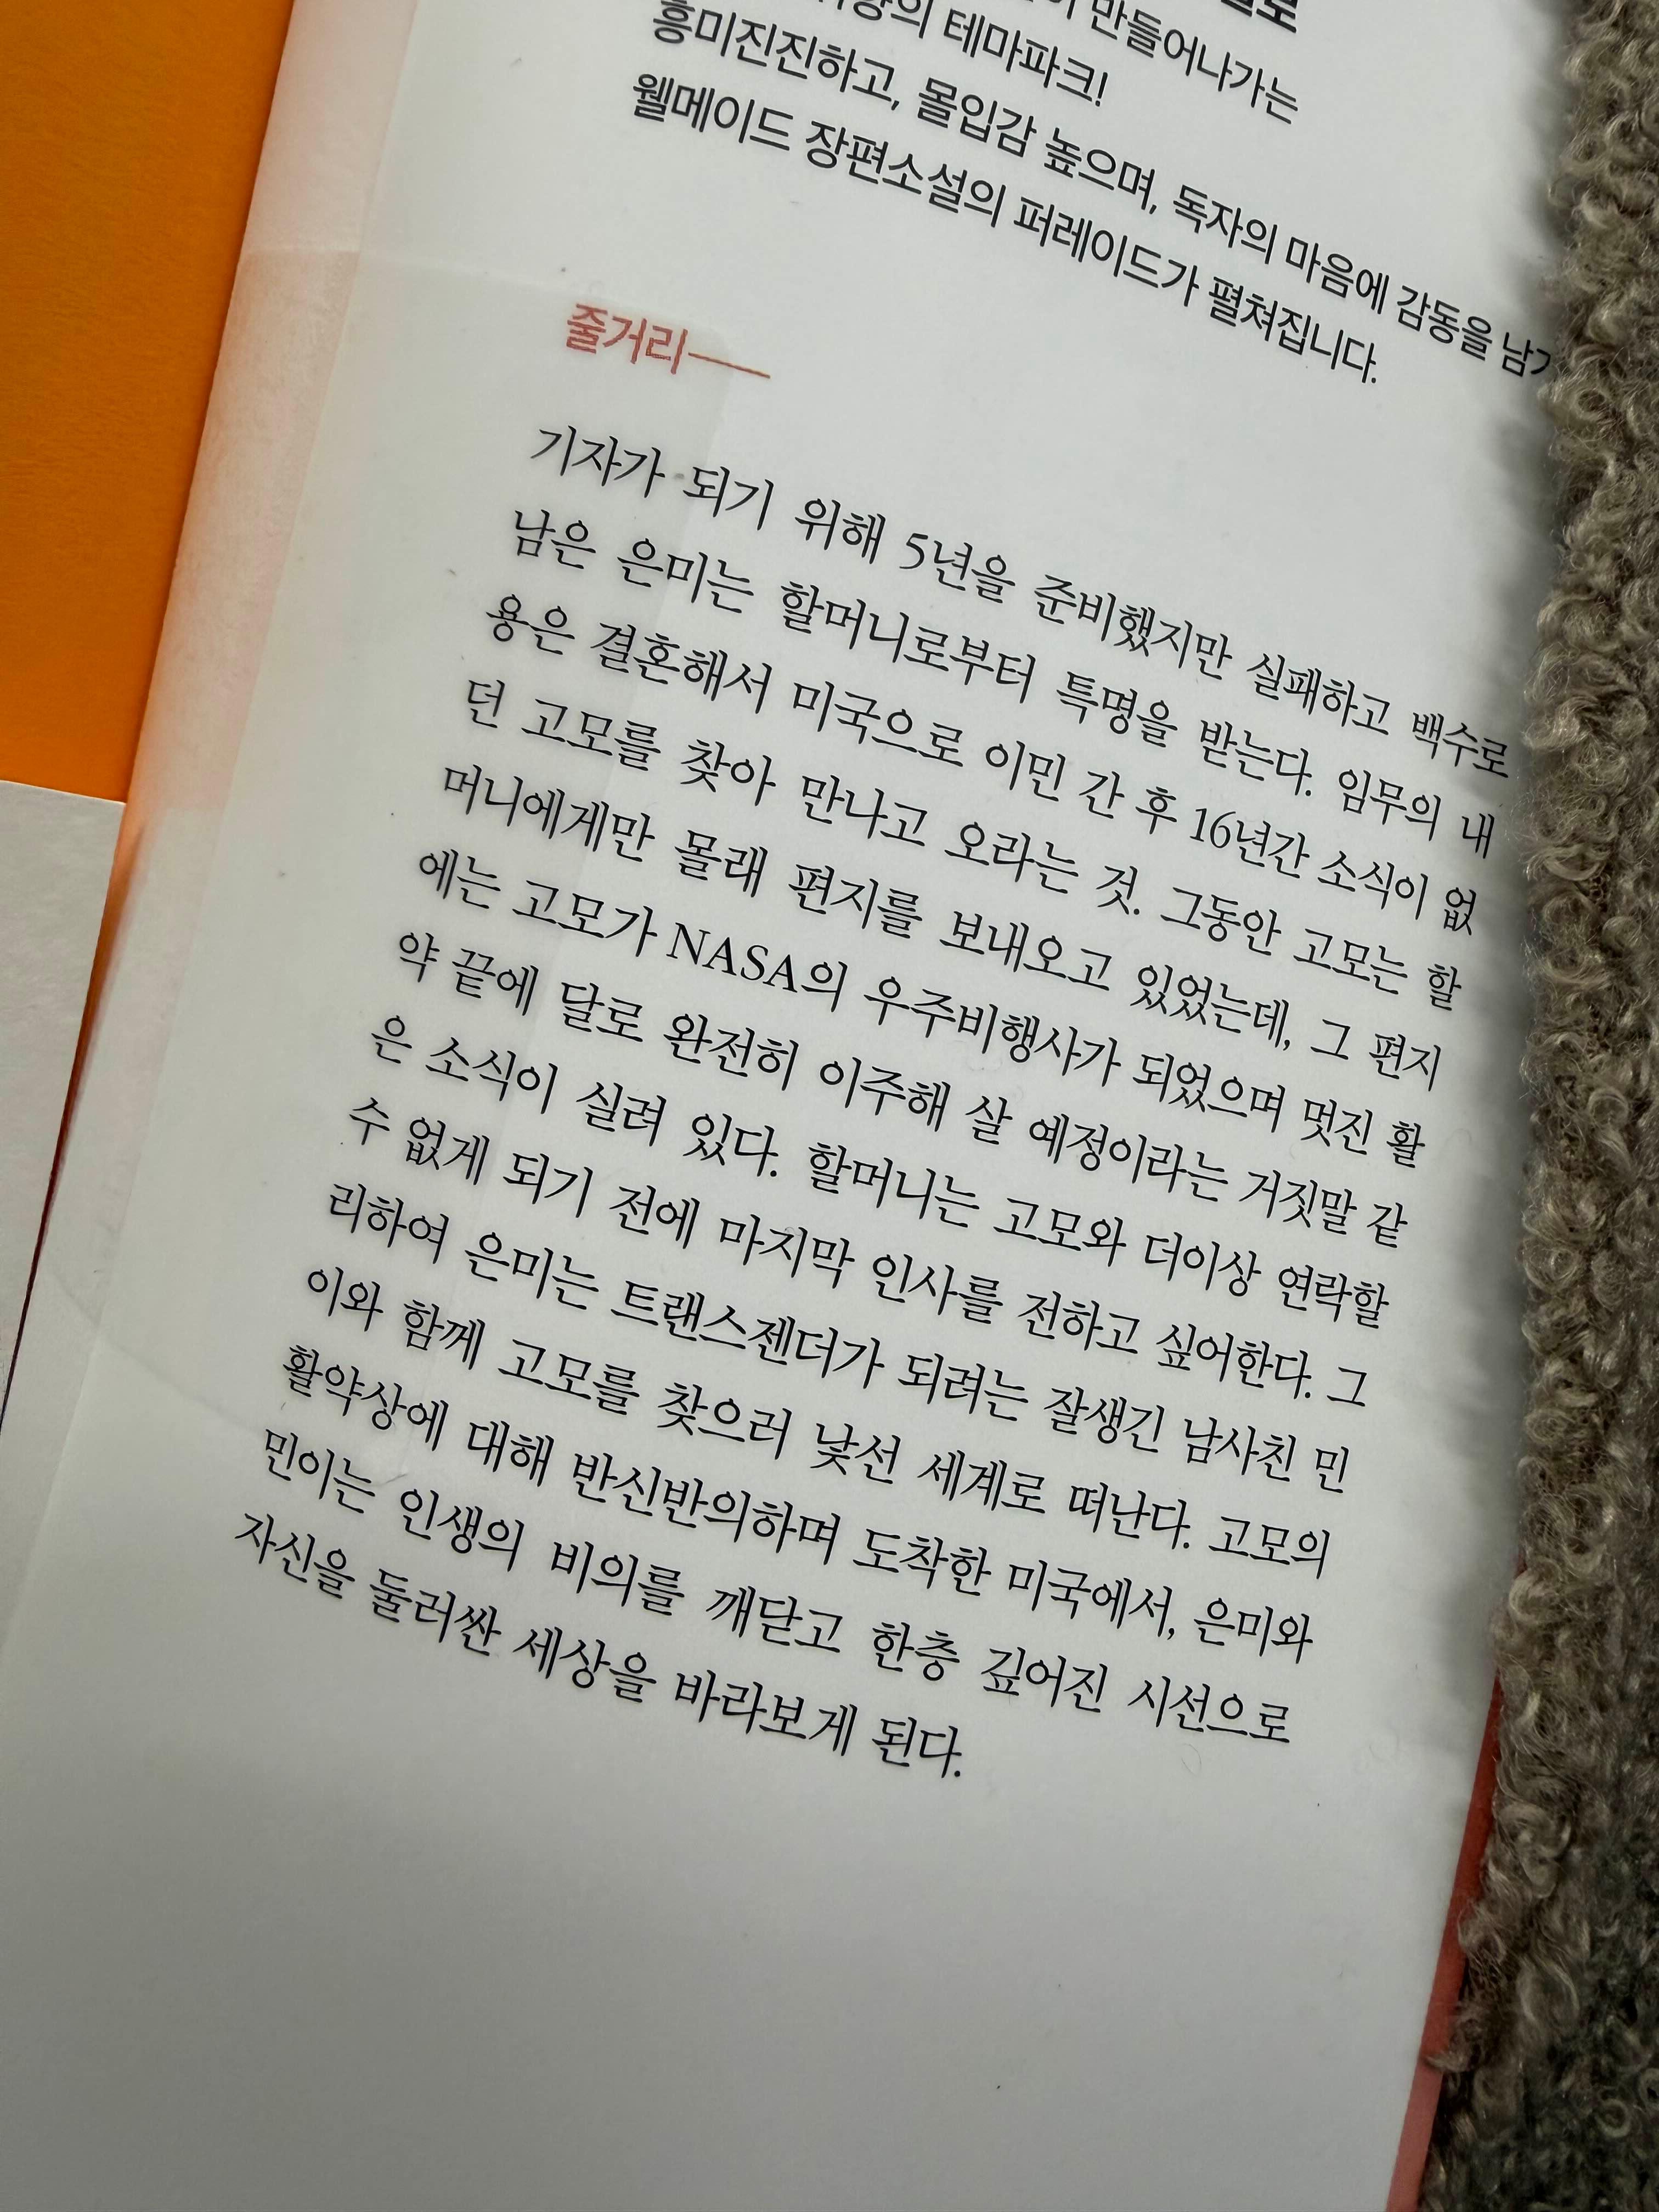 만들어나가는
테마파크!
흥미진진하고, 몰입감 높으며, 독자의 마음에 감동을
웰메이드 장편소설의 퍼레이드가 펼쳐집니다.
줄거리——
기자가 되기 위해 5년을 준비했지만 실패하고 백수로
남은 은미는 할머니로부터 특명을 받는다. 임무의 내
용은 결혼해서 미국으로 이민 간 후 16년간 소식이 없
던 고모를 찾아 만나고 오라는 것. 그동안 고모는 할
머니에게만 몰래 편지를 보내오고 있었는데, 그 편지
에는 고모가 NASA의 우주비행사가 되었으며 멋진 활
약 끝에 달로 완전히 이주해 살 예정이라는 거짓말 같
은 소식이 실려 있다. 할머니는 고모와 더이상 연락할
수 없게 되기 전에 마지막 인사를 전하고 싶어한다. 그
리하여 은미는 트랜스젠더가 되려는 잘생긴 남사친 민
이와 함께 고모를 찾으러 낯선 세계로 떠난다. 고모의
활약상에 대해 반신반의하며 도착한 미국에서, 은미와
민이는 인생의 비의를 깨닫고 한층 깊어진 시선으로
자신을 둘러싼 세상을 바라보게 된다.